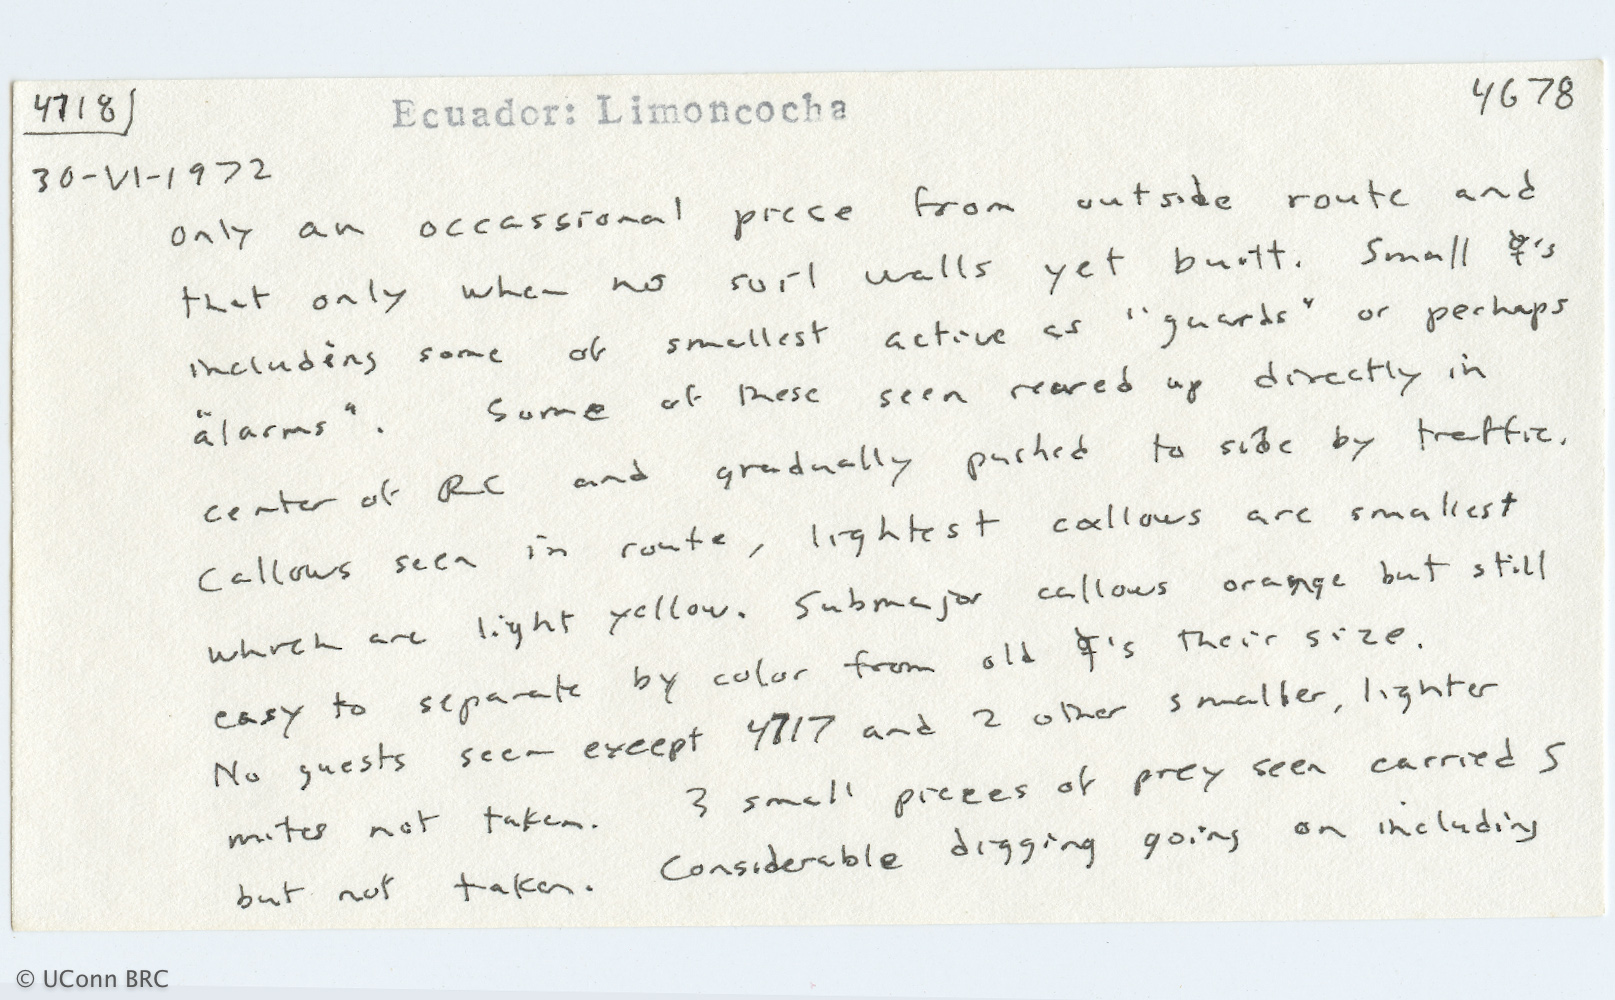 4718
Ecuador: Limoncocha
4678
30-VI-1972
only an occassional piece from outside route and
that only when no soil walls yet built. Small ☿'s
including some of smallest active as "guards" or perhaps
"alarms". Some of these seen reared up directly in
center of RC and gradually pushed to side by traffic.
Callows seen in route, lightest callows are smallest
which are light yellow. Submajor callows orange but still
easy to separate by color from old ☿'s their size.
No guests seen except 4717 and 2 other smaller, lighter
mites not taken. 3 small pieces of prey seen carried S
but not taken. Considerable digging going on including
© UConn BRC